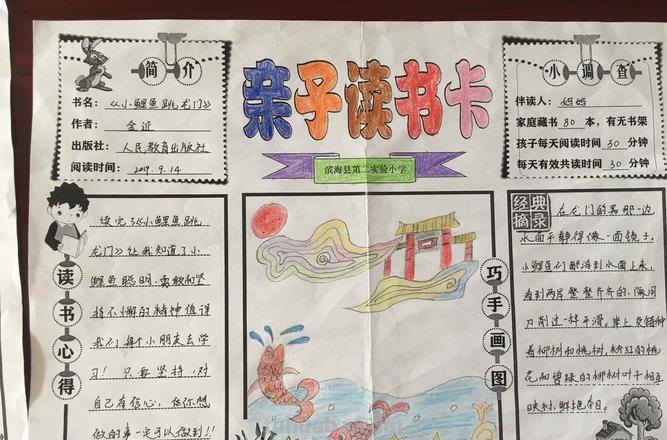 简介
书名：《小鲤鱼跳龙门》
作者：金近
出版社：人民教育出版社
阅读时间：2019.9.14
亲子读书卡
滨海县第二实验小学
小调查
伴读人：妈妈
家庭藏书80本，有无书架
孩子每天阅读时间30分钟
每天有效共读时间30分钟
读书心得
读完了《小鲤鱼跳
龙门》让我知道了小
鲤鱼聪明、勇敢和坚
持不懈的精神值得
我们每个小朋友去学
习！只要坚持，对
自己有信心，任你想
做的事一定可以做到！！
巧手画图
经典摘录
在龙门的另那一边，
水面平静得像一面镜子，
小鲤鱼们都浮到水面上来，
看到两岸整整齐齐的，像用
刀削过一样平滑。岸上交错种
着柳树和桃树，粉红的桃
花和碧绿的柳树叶子相互
映衬，鲜艳夺目。